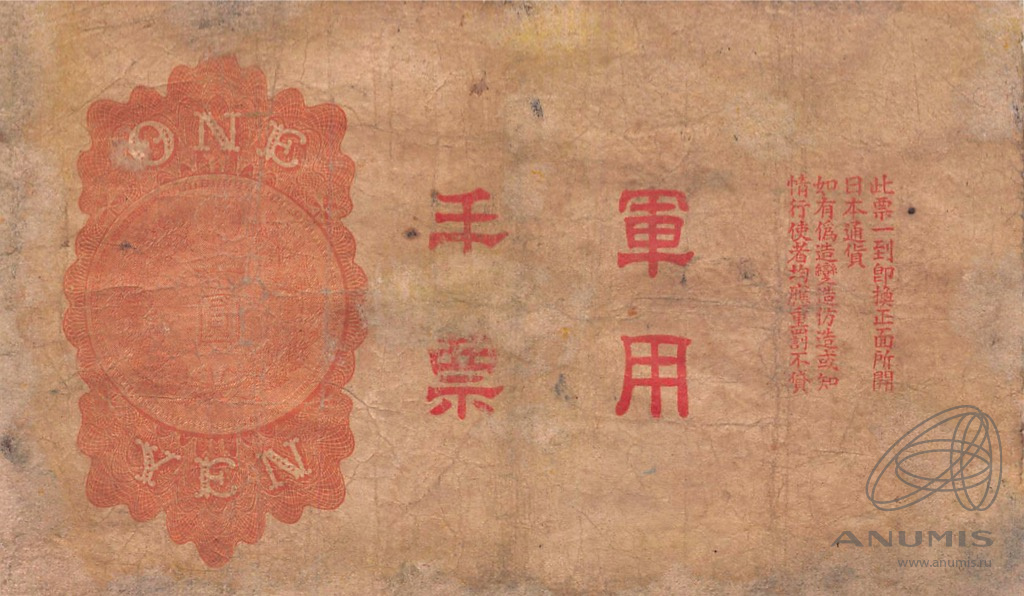 此票一到卽換正面所開
日本通貨
如有僞造變造仿造或知
情行使者均應重罰不貸
軍用
手票
ONE
圓
YEN
ANUMIS
www.anumis.ru